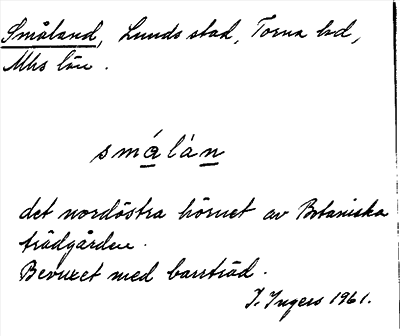 Småland, Lunds stad, Torna hd,
Mhs län.
smálàn
det nordöstra hörnet av Botaniska
trädgården.
Bevuxet med barrträd.
I. Ingers 1961.